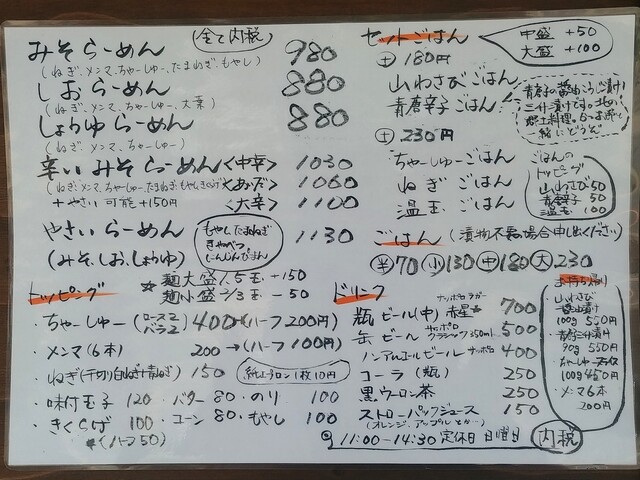 みそらーめん (全て内税) 980
(ねぎ、メンマ、ちゃーしゅー、たまねぎ、もやし)
しおらーめん 880
(ねぎ、メンマ、ちゃーしゅー、大葉)
しょうゆらーめん 880
(ねぎ、メンマ、ちゃーしゅー)
辛いみそらーめん <中辛> 1030
(ねぎ、メンマ、ちゃーしゅー、たまねぎ、もやし、きくらげ) <あいだ> 1060
+やさい 可能 +150円 <大辛> 1100
やさいらーめん 1130
(みそ、しお、しょうゆ)
もやし、たまねぎ
きゃべつ
にんじん、ぴーまん
トッピング
*麺大盛/1.5玉 +150
麺小盛 2/3玉 -50
・ちゃーしゅー(ロース2 バラ2) 400→(ハーフ200円)
・メンマ(6本) 200→(ハーフ100円)
・ねぎ(千切り白ねぎ+青ねぎ) 150
紙エプロン1枚10円
・味付玉子 120 ・バター 80 ・のり 100
・きくらげ 100 ・コーン 80 ・もやし 100
*(ハーフ50)
セットごはん
中盛 +50
大盛 +100
+180円
山わさびごはん
青唐辛子ごはん
青唐辛子の醤油こうじ漬け
三升漬けです。北の
郷土料理。
一緒にどうぞ
+230円
ちゃーしゅーごはん
ねぎごはん
温玉ごはん
ごはんの
トッピング
山わさび 50
青唐辛子 50
温玉 100
ごはん (漬物不要場合申し出ください)
半70 小130 中180 大230
ドリンク
瓶ビール(中) サッポロラガー 赤星 700
缶ビール サッポロクラシック350ml 500
ノンアルコールビール サッポロ 400
コーラ(瓶) 250
黒ウーロン茶 250
ストローパックジュース 150
(オレンジ、アップルとか…)
お持ち帰り
・山わさび
醤油漬け
100g 550円
・青唐三升漬け
90g 550円
・ちゃーしゅー
100g 450円
・メンマ6本
200円
11:00-14:30 定休日 日曜日 内税